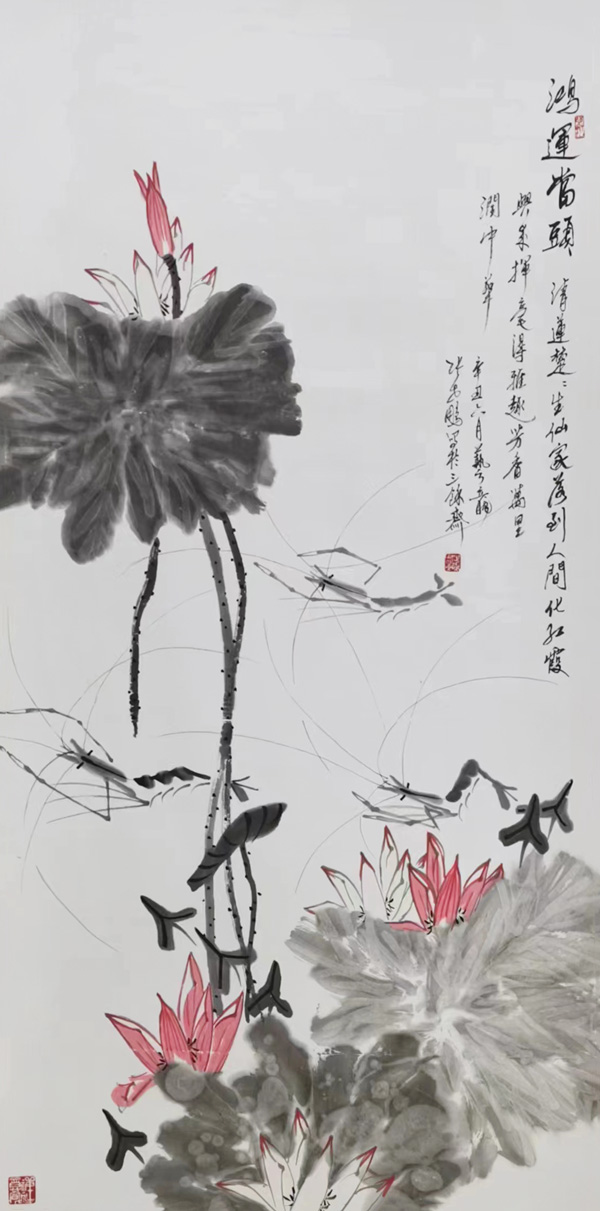 鴻運當頭
清蓮楚〻生仙家落到人間化紅霞
興來揮毫得雅趣芳香萬里
潤中華
辛丑六月藝
寫於三餘齋